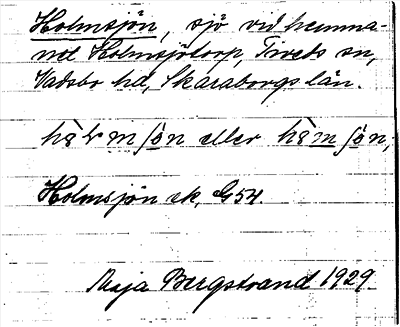 Holmsjön, sjö vid hemma-
net Holmsjötorp, Tiveds sn,
Vadsbo hd, Skaraborgs län.
eller
Holmsjön ek. G54.
Maja Bergstrand 1929.